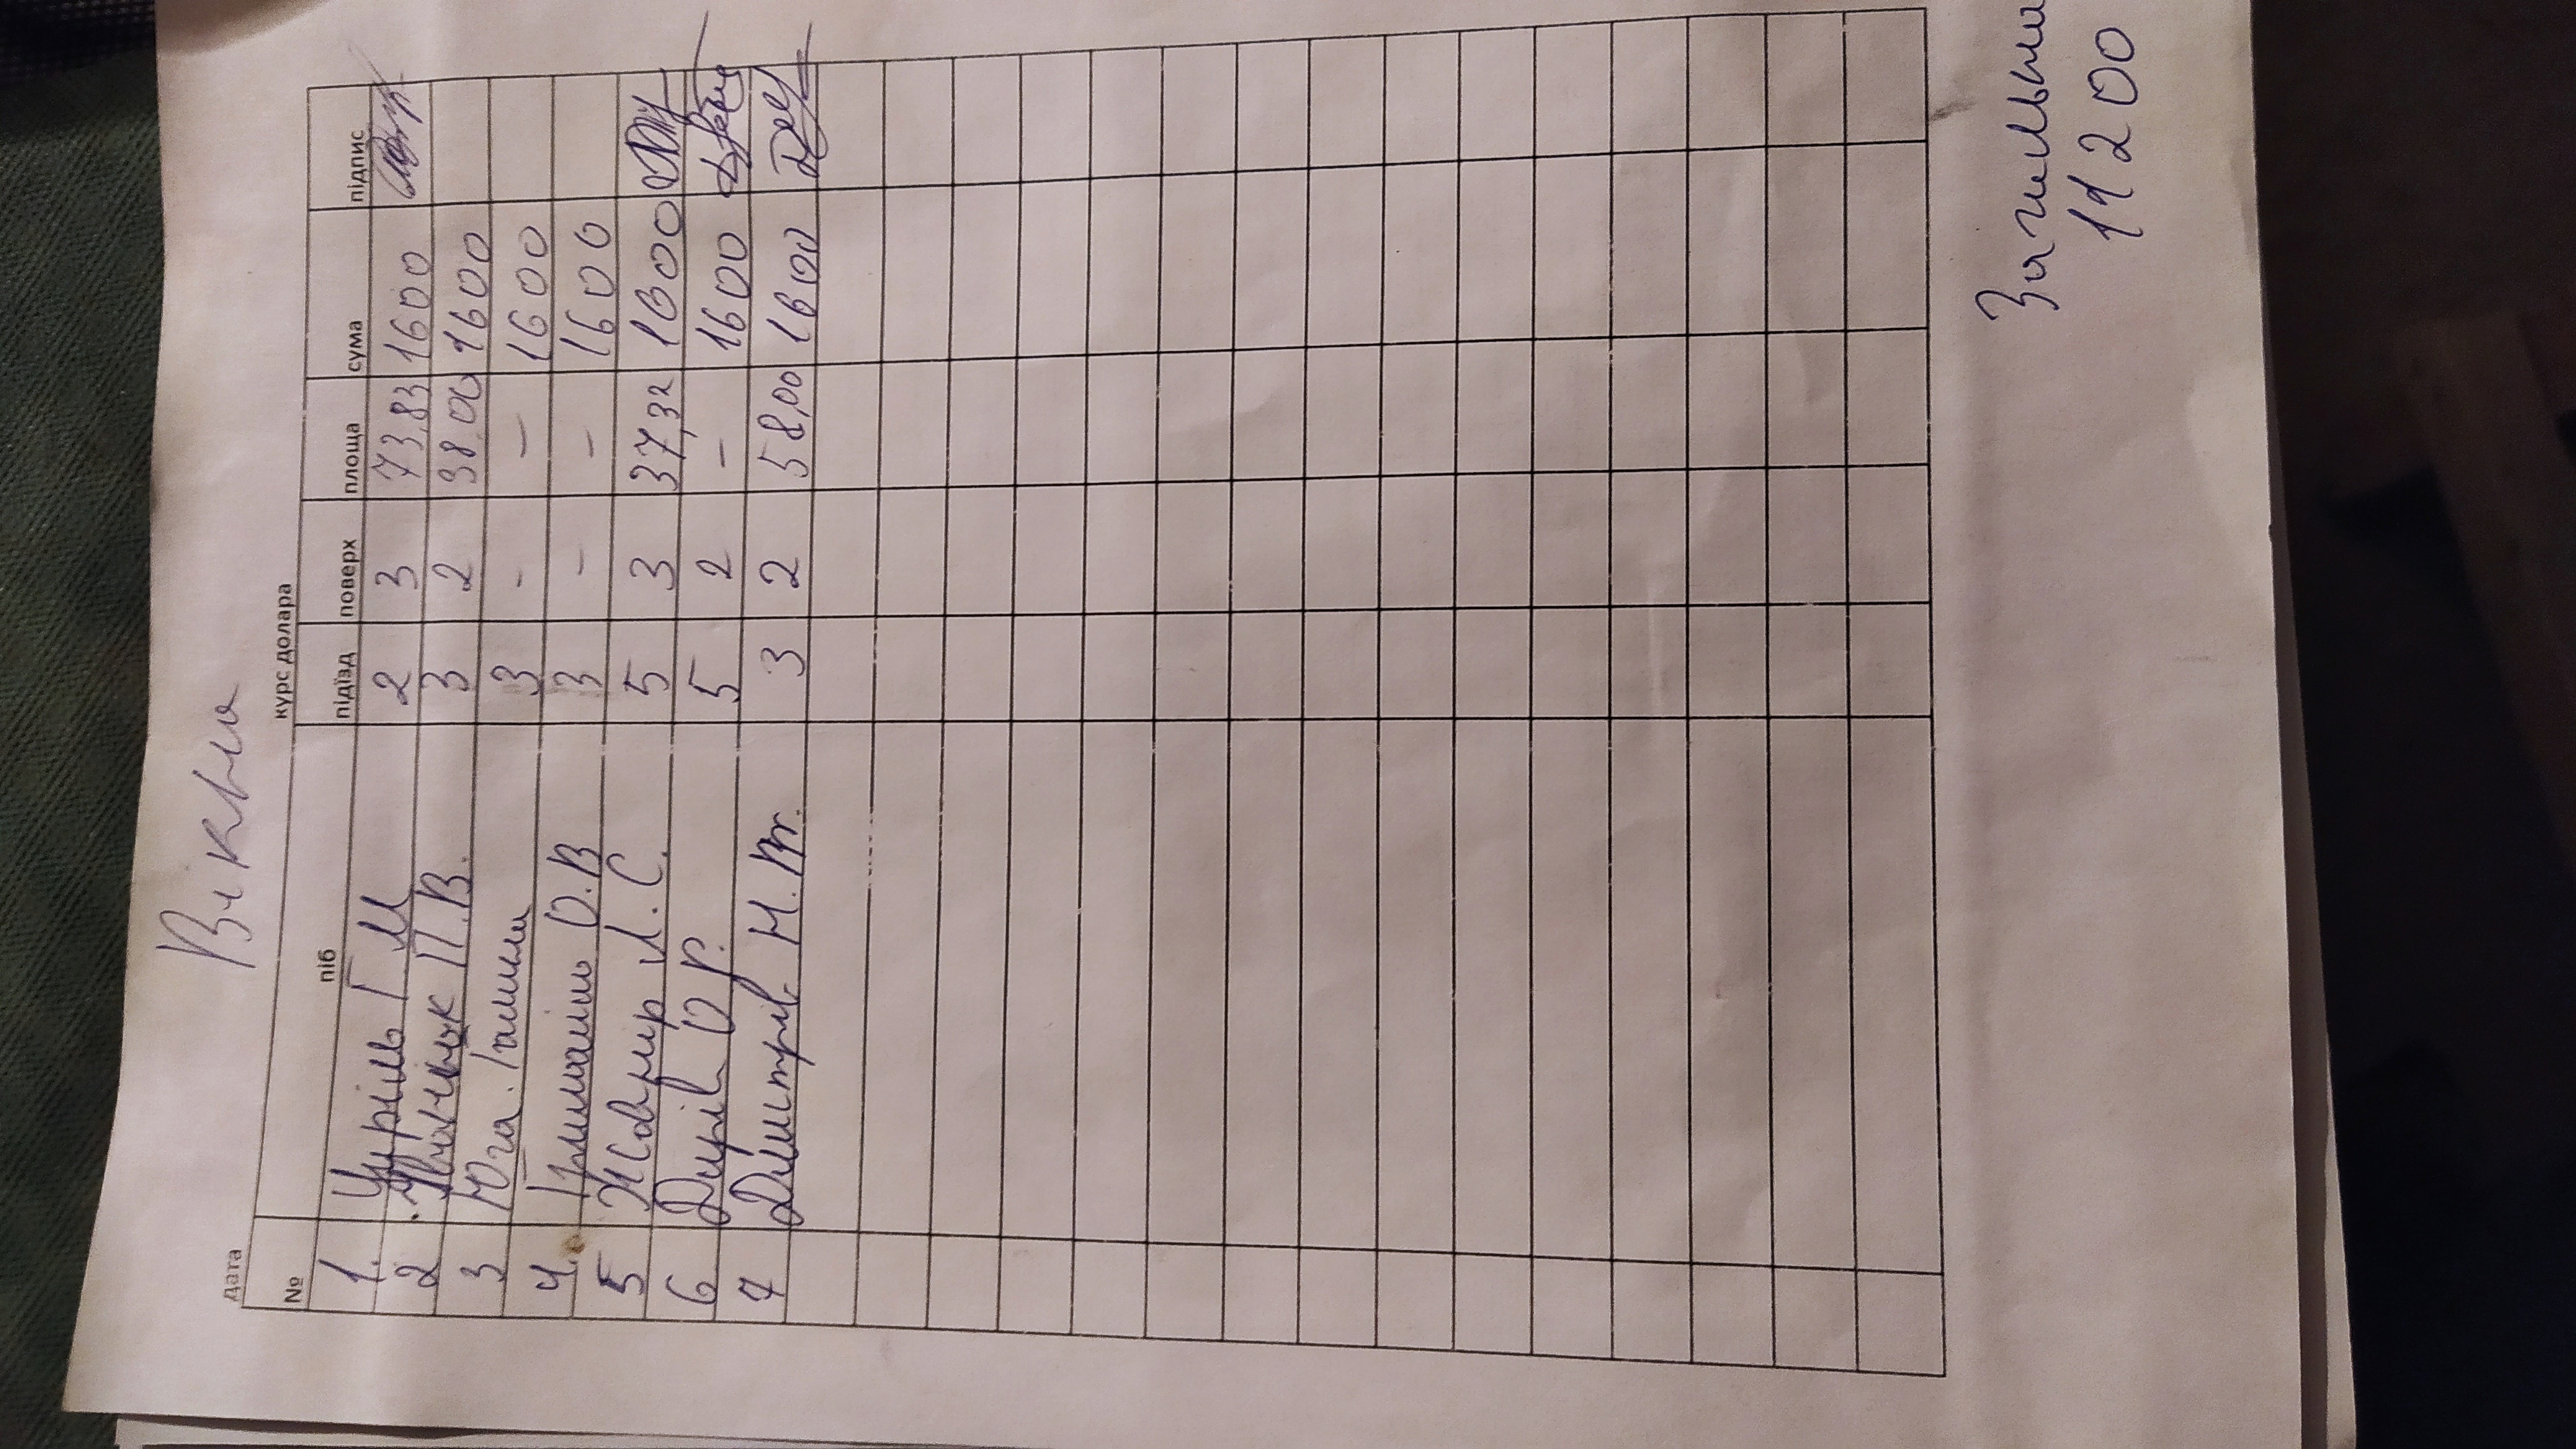 Вікна
дата
курс долара
№ піб підїзд поверх площа сума підпис
1. Цуріль Г М 2 3 73,83 1600
2 Іванчук П.В. 3 2 38,00 1600
3 Юга Галина 3 - - 1600
4. О.В 3 - - 1600
5 Жовнір Л. С. 5 3 37,32 1600
6 Дирів О Р. 5 2 - 1600
7 Дмитрів Н. 3 2 58,00 1600
Загильна
11200